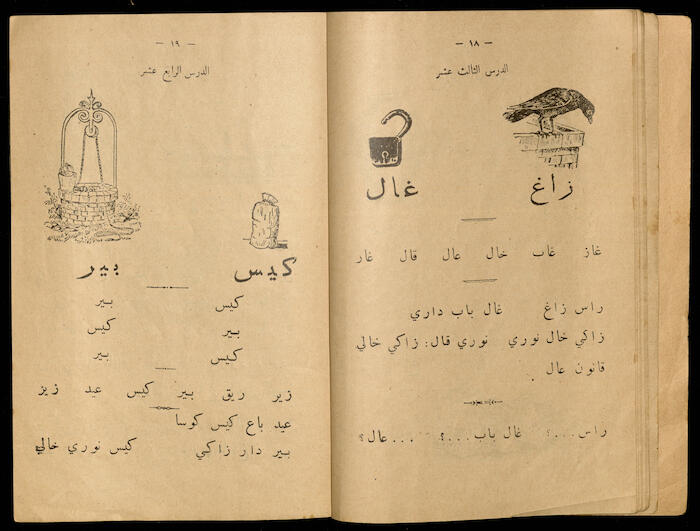 — ١٨ —
الدرس الثالث عشر
زاغ غال
غاز غاب خال عال قال غار
راس زاغ غال باب داري
زاكي خال نوري نوري قال: زاكي خالي
قانون عال .
راس...؟ غال باب...؟ ...عال؟
— ١٩ —
الدرس الرابع عشر
كيس بير
كيس بير
بير كيس
كيس بير
زير ريق بير كيس عيد زيز
عيد باع كيس كوسا
بير دار زاكي كيس نوري خالي